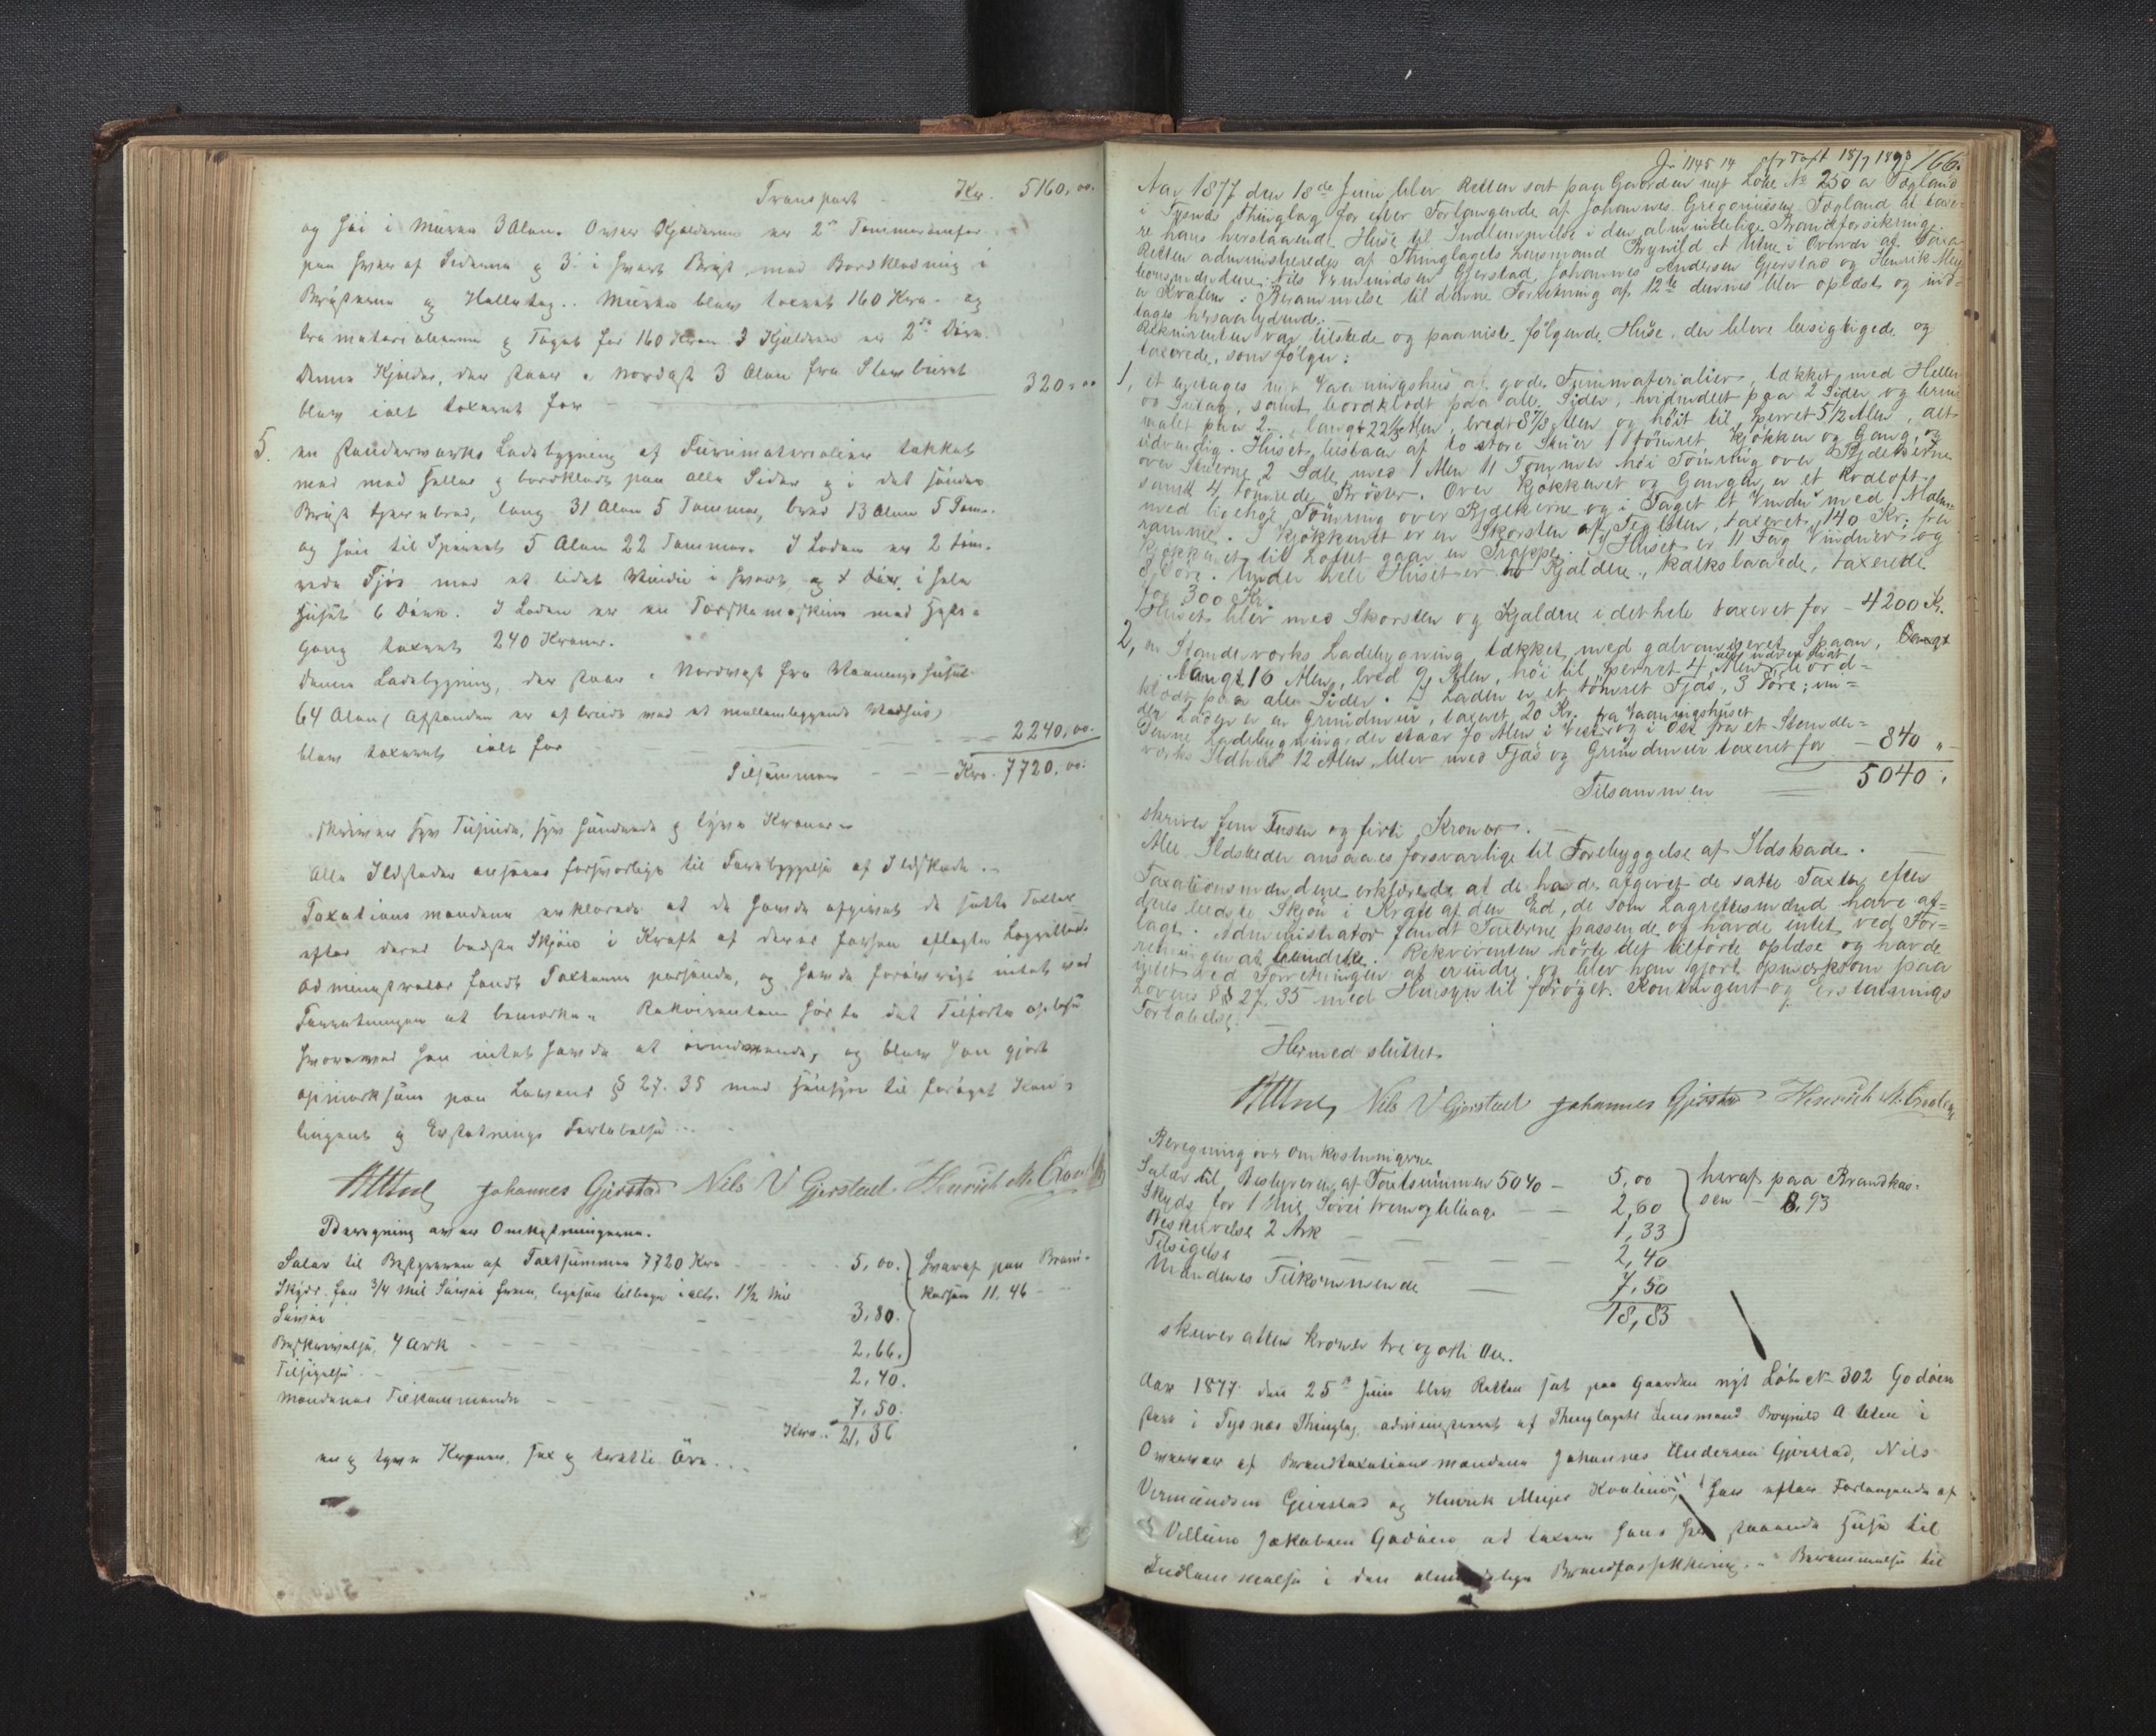 Transport - Kr. 5160,00.
og høi i Muren 3 Alen. Over Kjelderen er 2de Tømmeromfar
paa hver af Siderne og 3 i hvert Bryst, med Bordklædning i
Brysterne og Helletag. Muren blev taxeret 160 Kro. og
træmaterialierne og Taget for 160 Kron. I Kjelderen er 2de Døre.
Denne Kjelder, der staar i Nordost 3 Alen fra Stavburet
blev ialt taxeret for 320,00
5. en standerværks Ladebygning af Furumaterialier takket
med med Heller og bordklædt paa alle Sider og i det søndre
Bryst tjærubred, lang 31 Alen 5 Tommer, bred 13 Alen 5 Tom.
og høi til Sperret 5 Alen 22 Tommer. I Laden er 2 tøm-
rede Fjøs med et lidet Vindu i hvert, og i hele
Huset 6 Døre. I Laden er en Tærskemaskine med Heste-
gang taxeret 240 Kroner.
Denne Ladebygning, der staar i Nordvest fra Vaaningshuset
64 Alen (Afstanden er afbrudt med et mellemliggende Vedhus)
blev taxeret ialt for 2240,00.
Tilsammen - - Kro. 7720,00.
skriver syv Tusinde, syv Hundrede og tyve Kroner.
Alle Ildsteder ansaaes forsvarlige til Forebyggelse af Ildskade.
Taxationsmændene erklærede at de havde afgivet de satte Taxter
efter deres bedste Skjøn i Kraft af deres forhen aflagte Lagrettesed.
Administrator fandt Taxterne passende, og havde forøvrigt intet ved
Forretningen at bemærke. Rekvirenten hørte det Tilførte oplæse
hvorved han intet havde at erindre, og blev han gjort
opmærksom paa Lovens § 27. 35 med Hensyn til forøget Kon-
tingent og Erstatnings Fortabelse.
Johannes Gjerstad Nils V Gjerstad Henrich M. Kvalen
Beregning over Omkostningerne.
Salær til Bestyreren af Taxtsummen 7720 Kro 5,00. } heraf paa Brand-
Skyds for 3/4 Mil Søvei frem, ligesaa tilbage ialt 1 1/2 Mil kassen 11.46
Søvei 3,80.
Beskrivelse, 4 Ark 2,66.
Tilsigelse 2,40.
Mændenes Tilkommende 7,50.
Kro. 21,36
en og tyve Kroner, sex og tretti Øre.
Jr 1145 14 Taxt 18/7 1893 166.
Aar 1877 den 18de Juni blev Retten sat paa Gaarden nyt Løbe No 250 a Tøgland
i Tysnæs Thinglag for efter Forlangende af Johannes Gregoriussen Tøgland at taxe-
re hans herstaaende Huse til Indlemmelse i den almindelige Brandforsikring.
Retten administreredes af Thinglagets Lensmand Brynild A Utne i Overvær af Taxa-
tionsmændene Nils Vermundsen Gjerstad, Johannes Andersen Gjerstad og Henrik Mey-
er Kvalen. Berammelse til denne Forretning af 12te dennes blev oplæst og ind-
tages hersaalydende:
Rekvirenten var tilstede og paaviste følgende Huse, der bleve besigtigede og
taxerede, som følger:
1, et etetages nyt Vaaningshus af gode Furumaterialier, takket med Heller
og Sutag, samt bordklædt paa alle Sider, hvidmalet paa 2 Sider og brun-
malet paa 2, langt 22 1/2 Alen, bredt 8 2/3 Alen og høit til Sperret 5 1/2 Alen, alt
udvendig. Huset bestaar af to store Stuer 1 tømret Kjøkken og Gang, og
over Stuerne 2 Sale med 1 Alen 11 Tommer høi Tømring over Bjelkerne
samt 4 tømrede Brøster. Over Kjøkkenet og Gangen er et Rodloft
med ligehøi Tømring over Bjelkerne og i Taget et Vindu med Malm-
ramme. I Kjøkkenet er en Skorsten af Teglsten, taxeret 140 Kr; fra
Kjøkkenet til Loftet gaar en Trappe. I Huset er 11 Fag Vinduer og
8 Døre. Under hele Huset er to Kjældere, kalkslaaede, taxerede
for 300 Kr.
Huset blev med Skorsten og Kjældre i det hele taxeret for - 4200 Kr.
2, en Standerværks Ladebygning takket med galvaniseret Spaan,
langt 16 Alen, bred 9 Alen, høi til Sperret 4 Alen, alt udvendigt, bord-
klædt paa alle Sider. I Laden er et tømret Fjøs, 3 Døre; un-
der Laden er en Grundmur, taxeret 20 Kr. fra Vaaningshuset
Denne Ladebygning, der staar 70 Alen i Vest og i Øst fra et Stender-
værks Ildhus 12 Alen, blev med Fjøs og Grundmur taxeret for - 840 "
Tilsammen 5040 "
skriver fem Tusen og firti Kroner.
Alle Ildsteder ansaaes forsvarlige til Forebyggelse af Ildskade.
Taxationsmændene erklærede at de havde afgivet de satte Taxter efter
deres bedste Skjøn i Kraft af den Ed, de som Lagrettesmænd have af-
lagt. Administrator fandt Taxterne passende og havde intet ved For-
retningen at bemærke. Rekvirenten hørte det tilførte oplæse og havde
intet ved Forretningen at erindre og blev han gjort opmærksom paa
Lovens §§ 27. 35 med Hensyn til forøget Kontingent og Erstatnings
Fortabelse.
Hermed sluttet.
Nils V Gjerstad Johannes Gjerstad Henrich M. Kvalen
Beregning over Omkostningerne
Salær til Bestyreren af Taxtsummen 5040 - 5,00 } heraf paa Brandkas-
Skyds for 1 Mil Søvei frem og tilbage - - 2,60 sen - 8,93
Beskrivelse 2 Ark 1,33
Tilsigelse 2,40
Mændenes Tilkommende 7,50
18,83
skriver atten kroner tre og otti Øre.
Aar 1877 den 25de Juni blev Retten sat paa Gaarden nyt Løbe No 302 Godøen
i Tysnæs Thinglag, administreret af Thinglagets Lensmand Brynild A Utne i
Overvær af Brandtaxationsmændene Johannes Andersen Gjerstad, Nils
Vermundsen Gjerstad og Henrik Meyer Kvalen, for efter Forlangende af
Villum Jakobsen Godøen at taxere hans her staaende Huse til
Indlemmelse i den almindelige Brandforsikkring. Berammelse til